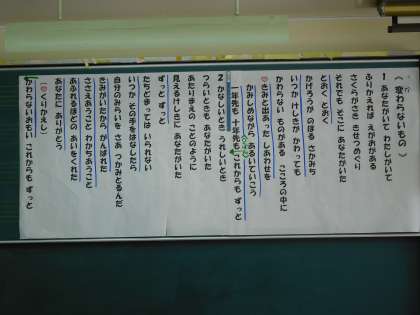 〈 変わらないもの 〉
1 あなたがいて わたしがいて
ふりかえれば えがおがある
さくらがさき きせつめぐり
それでも そこに あなたがいた
とおく とおく
かげろうが のぼる さかみち
いつか けしきが かわっても
かわらない ものがある こころの中に
♡きみと出あった しあわせを
かみしめながら あるいていこう
一年先も 十年先も これからも ずっと
2 かなしいとき うれしいとき
つらいときも あなたがいた
あたりまえの ことのように
見えるけしきに あなたがいた
ずっと ずっと
たちどまっては いられない
いつか その手をはなしたら
自分のみらいを さあ つかみとるんだ
きみがいたから がんばれた
ささえあうこと わかちあうこと
あふれるほどの あいをくれた
あなたに ありがとう
(♡くりかえし)
かわらないおもい これからも ずっと